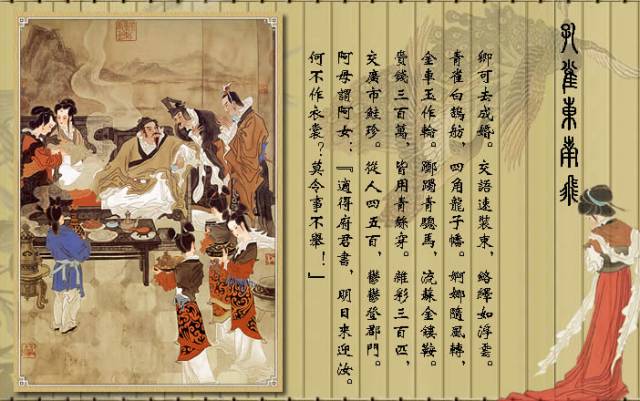 孔雀東南飛
卿可去成婚。交語速裝束，絡繹如浮雲。
青雀白鵠舫，四角龍子幡。婀娜隨風轉，
金車玉作輪。躑躅青驄馬，流蘇金鏤鞍。
賫錢三百萬，皆用青絲穿。雜彩三百匹，
交廣市鮭珍。從人四五百，鬱鬱登郡門。
阿母謂阿女：『適得府君書，明日來迎汝。
何不作衣裳？莫令事不舉！』